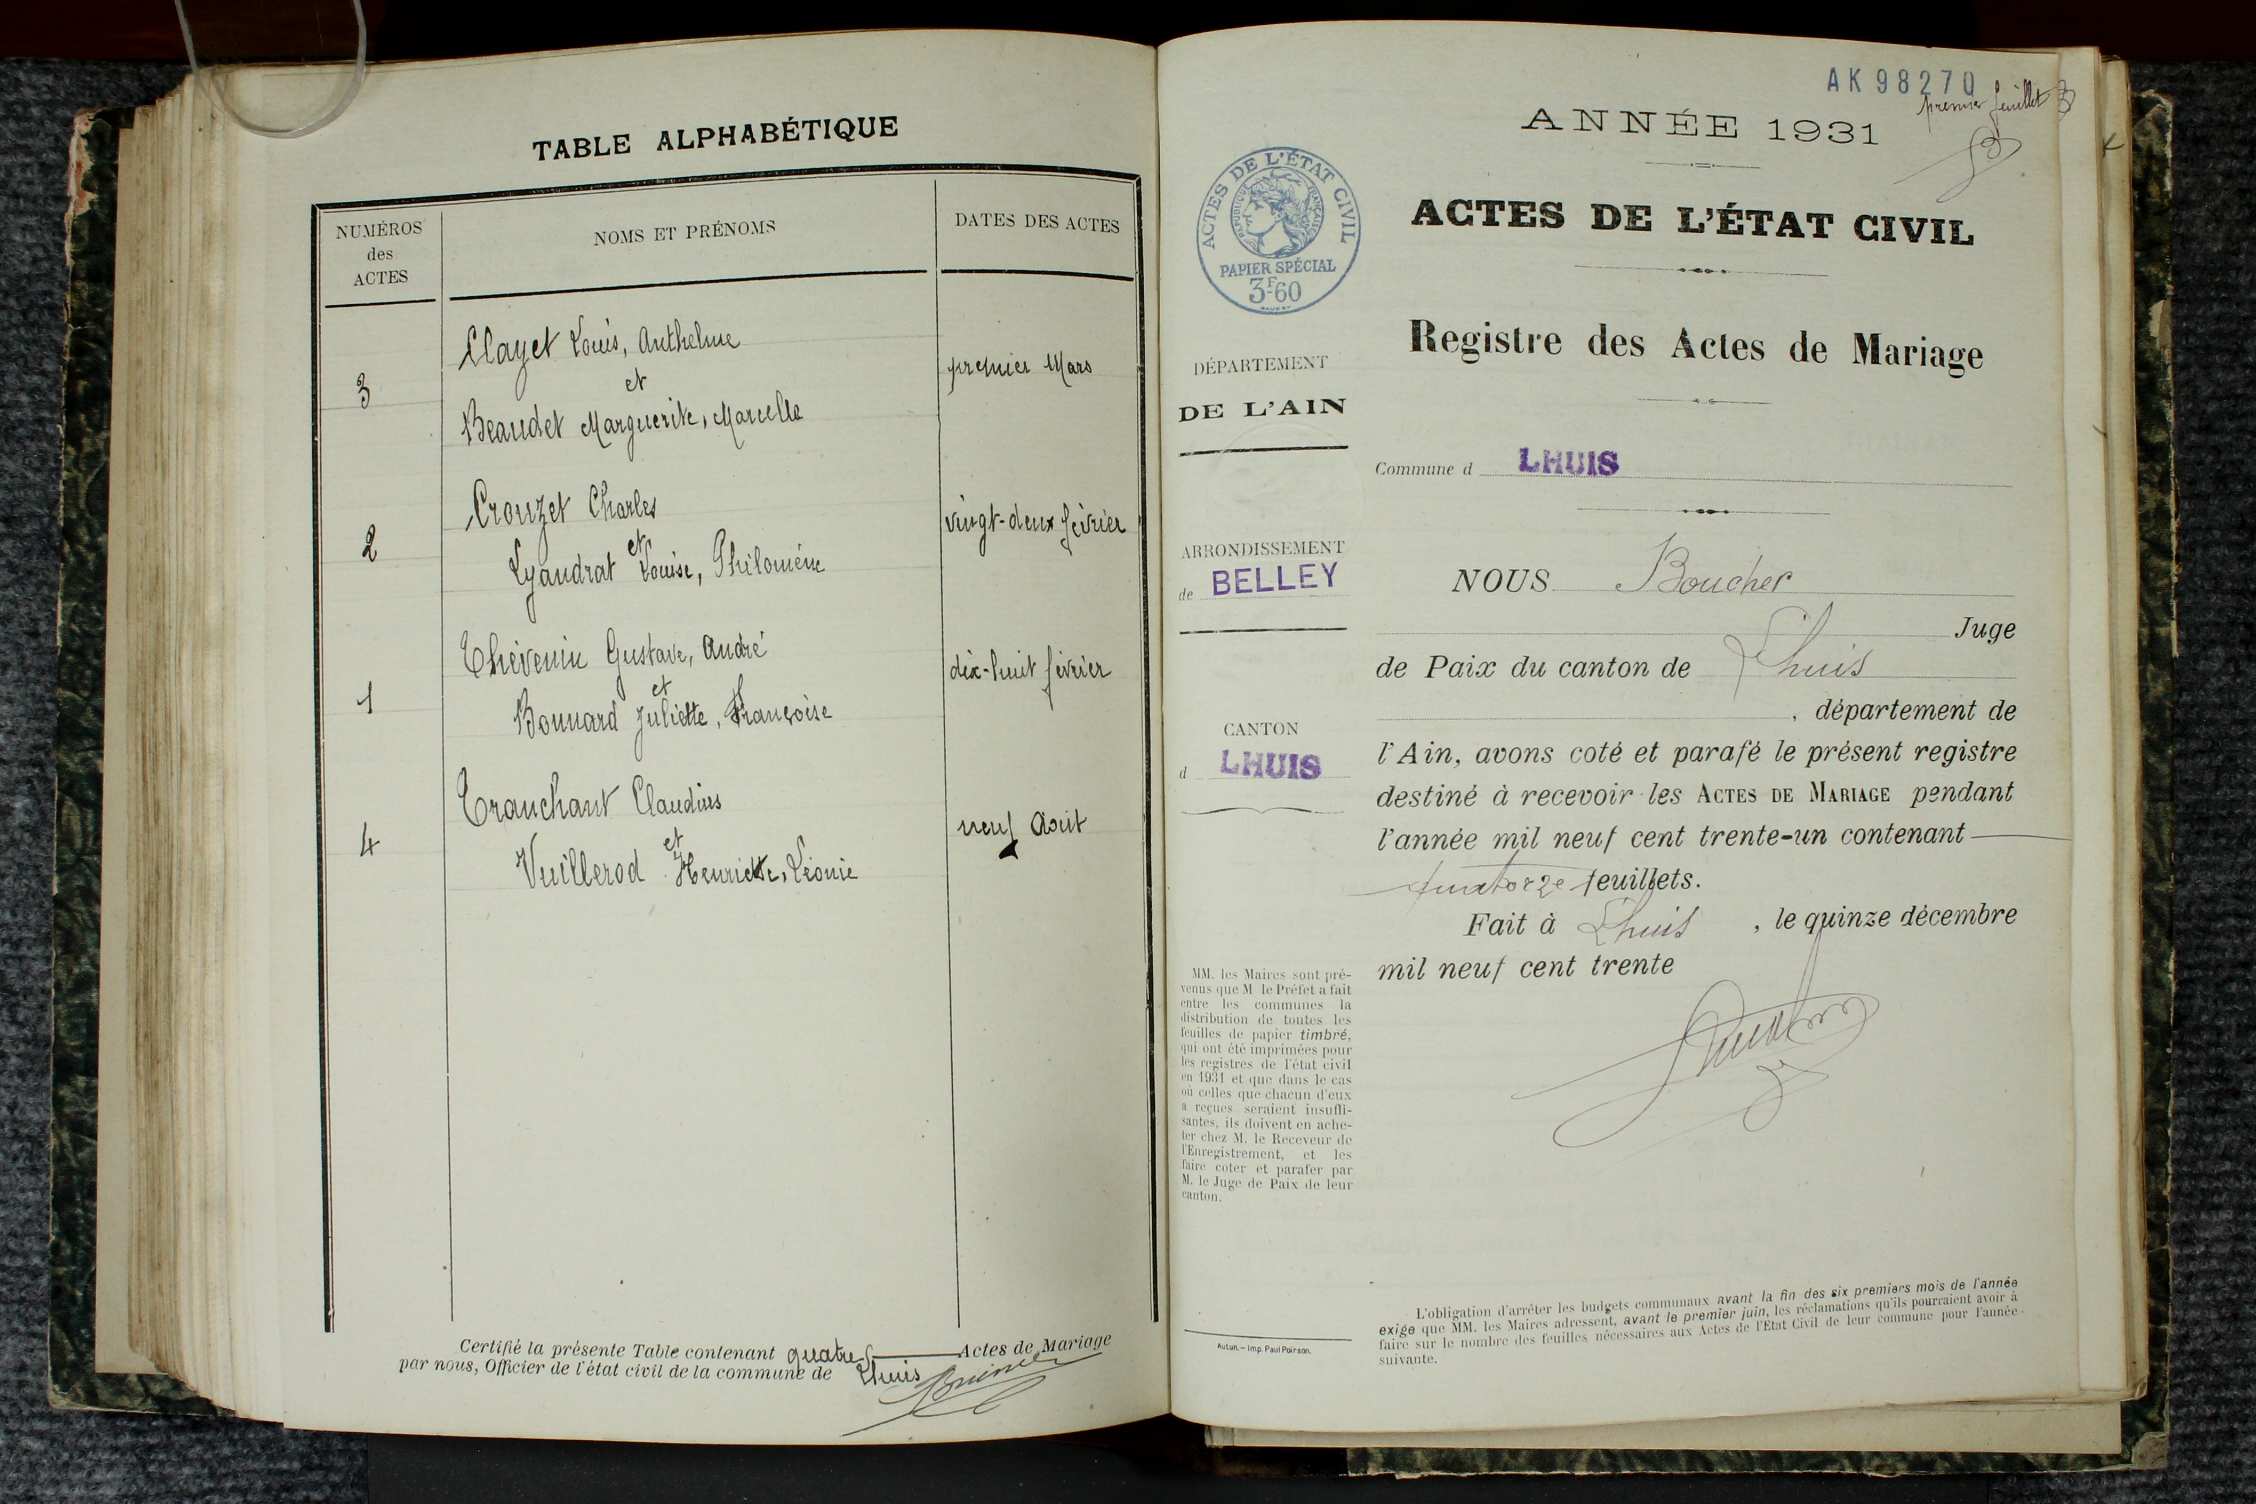 TABLE ALPHABÉTIQUE
NUMÉROS
des
ACTES
NOMS ET PRÉNOMS
DATES DES ACTES
Clayet Louis, Anthelme
3
et
premier Mars
Beaudet Marguerite, Marcelle
Crouzet Charles
2
et
vingt-deux février
Lyaudrat Louise, Philomène
Thévenin Gustave, André
1
et
dix-huit février
Bonnard Juliette, Françoise
Tranchant Claudius
4
et
neuf Août
Vuillerod Henriette, Léonie
Certifié la présente Table contenant quatre Actes de Mariage
par nous, Officier de l'état civil de la commune de Lhuis
AK98270
premier feuillet
ANNÉE 1931
ACTES DE L'ÉTAT CIVIL
RÉPUBLIQUE FRANÇAISE
PAPIER SPÉCIAL
3F60
ACTES DE L'ÉTAT CIVIL
Registre des Actes de Mariage
DÉPARTEMENT
DE L'AIN
Commune d LHUIS
ARRONDISSEMENT
de BELLEY
CANTON
d LHUIS
NOUS Boucher
Juge
de Paix du canton de Lhuis
, département de
l'Ain, avons coté et parafé le présent registre
destiné à recevoir les ACTES DE MARIAGE pendant
l'année mil neuf cent trente-un contenant
quatorze feuillets.
Fait à Lhuis, le quinze décembre
mil neuf cent trente
MM. les Maires sont pré-
venus que M. le Préfet a fait
entre les communes la
distribution de toutes les
feuilles de papier timbré,
qui ont été imprimées pour
les registres de l'état civil
en 1931 et que dans le cas
où celles que chacun d'eux
a reçues seraient insuffi-
santes, ils doivent en ache-
ter chez M. le Receveur de
l'Enregistrement, et les
faire coter et parafer par
M. le Juge de Paix de leur
canton.
Autun. — Imp. Paul Poirson.
L'obligation d'arrêter les budgets communaux avant la fin des six premiers mois de l'année
exige que MM. les Maires adressent, avant le premier juin, les réclamations qu'ils pourraient avoir à
faire sur le nombre des feuilles nécessaires aux Actes de l'Etat Civil de leur commune pour l'année
suivante.